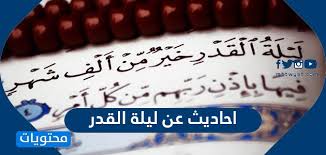 لَيْلَةُ الْقَدْرِ خَيْرٌ مِّنْ أَلْفِ شَهْرٍ
فِيهَا بِإِذْنِ رَبِّهِم مِّن كُلِّ أَمْرٍ
احاديث عن ليلة القدر
محتويات